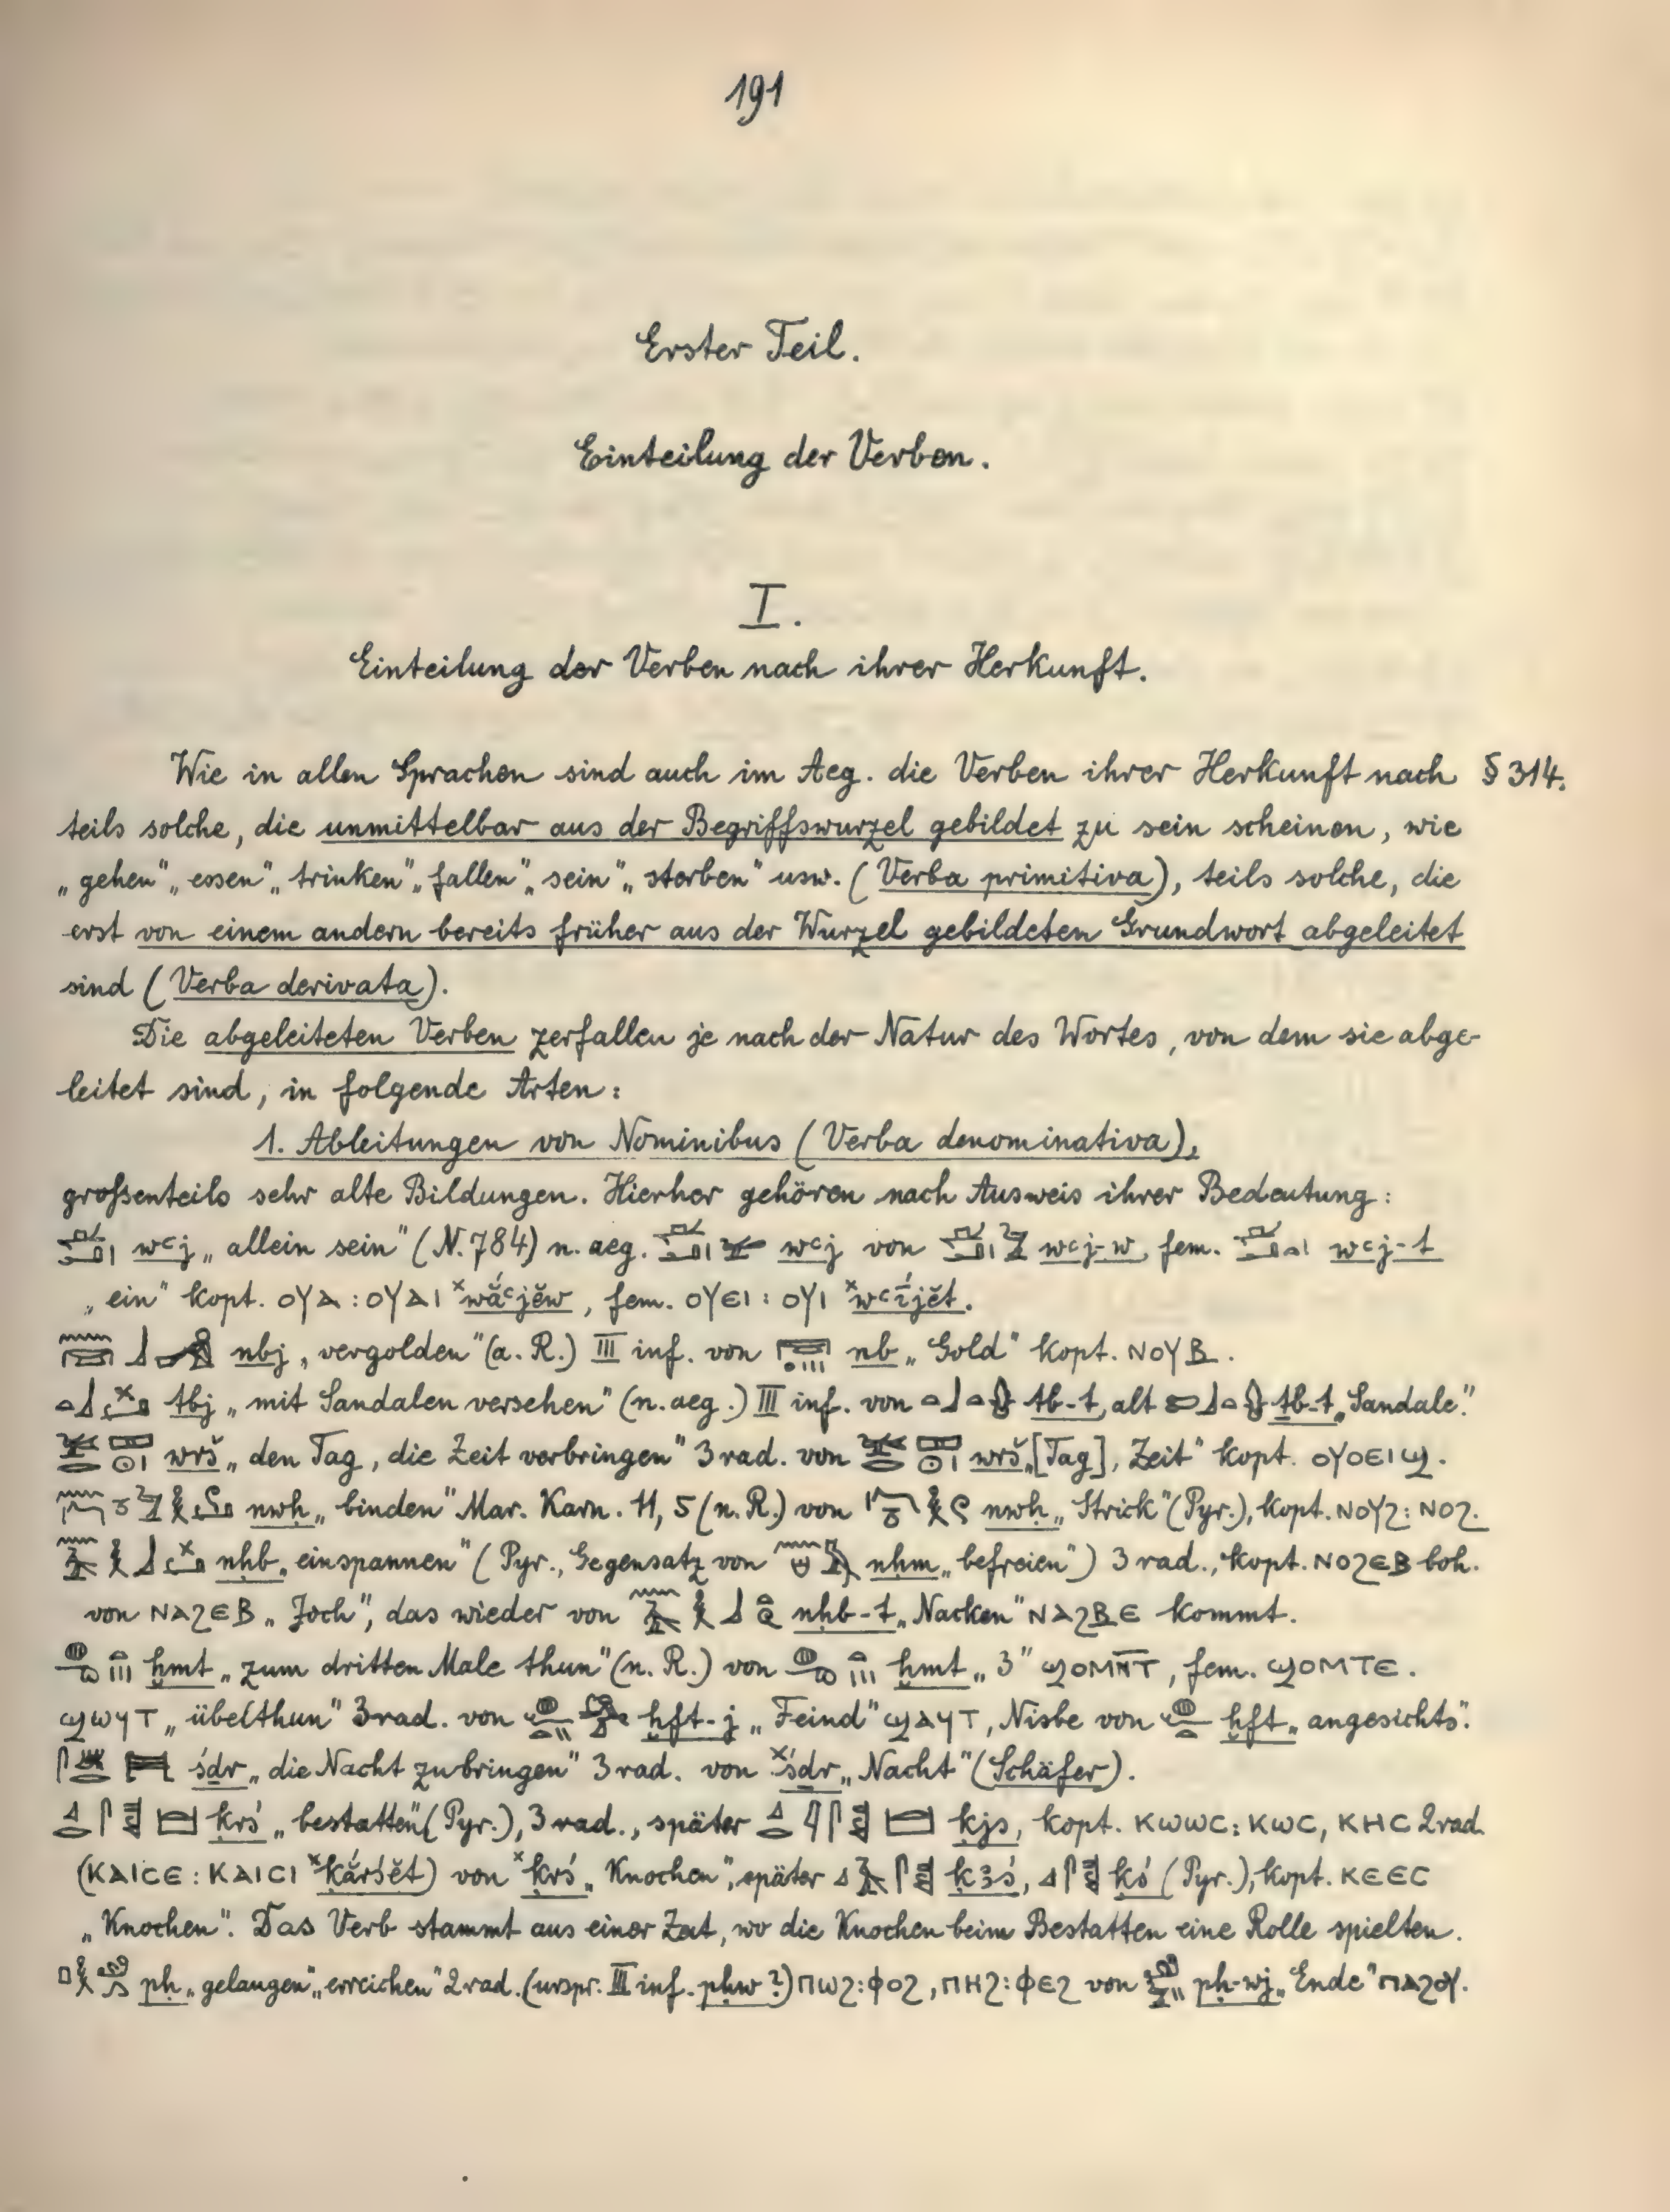 191
Erster Teil.
Einteilung der Verben.
I.
Einteilung der Verben nach ihrer Herkunft.
Wie in allen Sprachen sind auch im Aeg. die Verben ihrer Herkunft nach § 314.
teils solche, die unmittelbar aus der Begriffswurzel gebildet zu sein scheinen, wie
„gehen" „essen" „trinken" „fallen" „sein" „sterben" usw. (Verba primitiva), teils solche, die
erst von einem andern bereits früher aus der Wurzel gebildeten Grundwort abgeleitet
sind (Verba derivata).
Die abgeleiteten Verben zerfallen je nach der Natur des Wortes, von dem sie abge-
leitet sind, in folgende Arten:
1. Ableitungen von Nominibus (Verba denominativa),
großenteils sehr alte Bildungen. Hierher gehören nach Ausweis ihrer Bedeutung:
wꜥj „allein sein" (N. 784) n. aeg. wꜥj von wꜥj-w, fem. wꜥj-t
„ein" kopt. ⲟⲩⲁ : ⲟⲩⲁⲓ ˣwắꜥjĕw, fem. ⲟⲩⲉⲓ : ⲟⲩⲓ ˣwꜥī́jĕt.
nbj „vergolden" (a. R.) III inf. von nb „Gold" kopt. ⲛⲟⲩⲃ.
tbj „mit Sandalen versehen" (n. aeg.) III inf. von tb-t, alt ṯb-t „Sandale".
wrš „den Tag, die Zeit verbringen" 3 rad. von wrš „[Tag], Zeit" kopt. ⲟⲩⲟⲉⲓϣ.
nwḥ „binden" Mar. Karn. 11, 5 (n. R.) von nwḥ „Strick" (Pyr.), kopt. ⲛⲟⲩϩ : ⲛⲟϩ.
nḥb „einspannen" (Pyr., Gegensatz von nḥm „befreien") 3 rad., kopt. ⲛⲟϩⲉⲃ boh.
von ⲛⲁϩⲉⲃ „Joch", das wieder von nḥb-t „Nacken" ⲛⲁϩⲃⲉ kommt.
ḫmt „zum dritten Male thun" (n. R.) von ḫmt „3" ϣⲟⲙⲛ̄ⲧ, fem. ϣⲟⲙⲧⲉ.
ϣⲱϥⲧ „übelthun" 3 rad. von ḫft-j „Feind" ϣⲁϥⲧ, Nisbe von ḫft „angesichts".
śḏr „die Nacht zubringen" 3 rad. von ˣśḏr „Nacht" (Schäfer).
ḳrś „bestatten" (Pyr.), 3 rad., später ḳjs, kopt. ⲕⲱⲱⲥ : ⲕⲱⲥ, ⲕⲏⲥ 2 rad.
(ⲕⲁⲓⲥⲉ : ⲕⲁⲓⲥⲓ ˣḳắrśĕt) von ˣḳrś „Knochen", später ḳꜣś, ḳś (Pyr.), kopt. ⲕⲉⲉⲥ
„Knochen". Das Verb stammt aus einer Zeit, wo die Knochen beim Bestatten eine Rolle spielten.
pḥ „gelangen" „erreichen" 2 rad. (urspr. III inf. pḥw ?) ⲡⲱϩ : ⲫⲟϩ, ⲡⲏϩ : ⲫⲉϩ von pḥ-wj „Ende" ⲡⲁϩⲟⲩ.